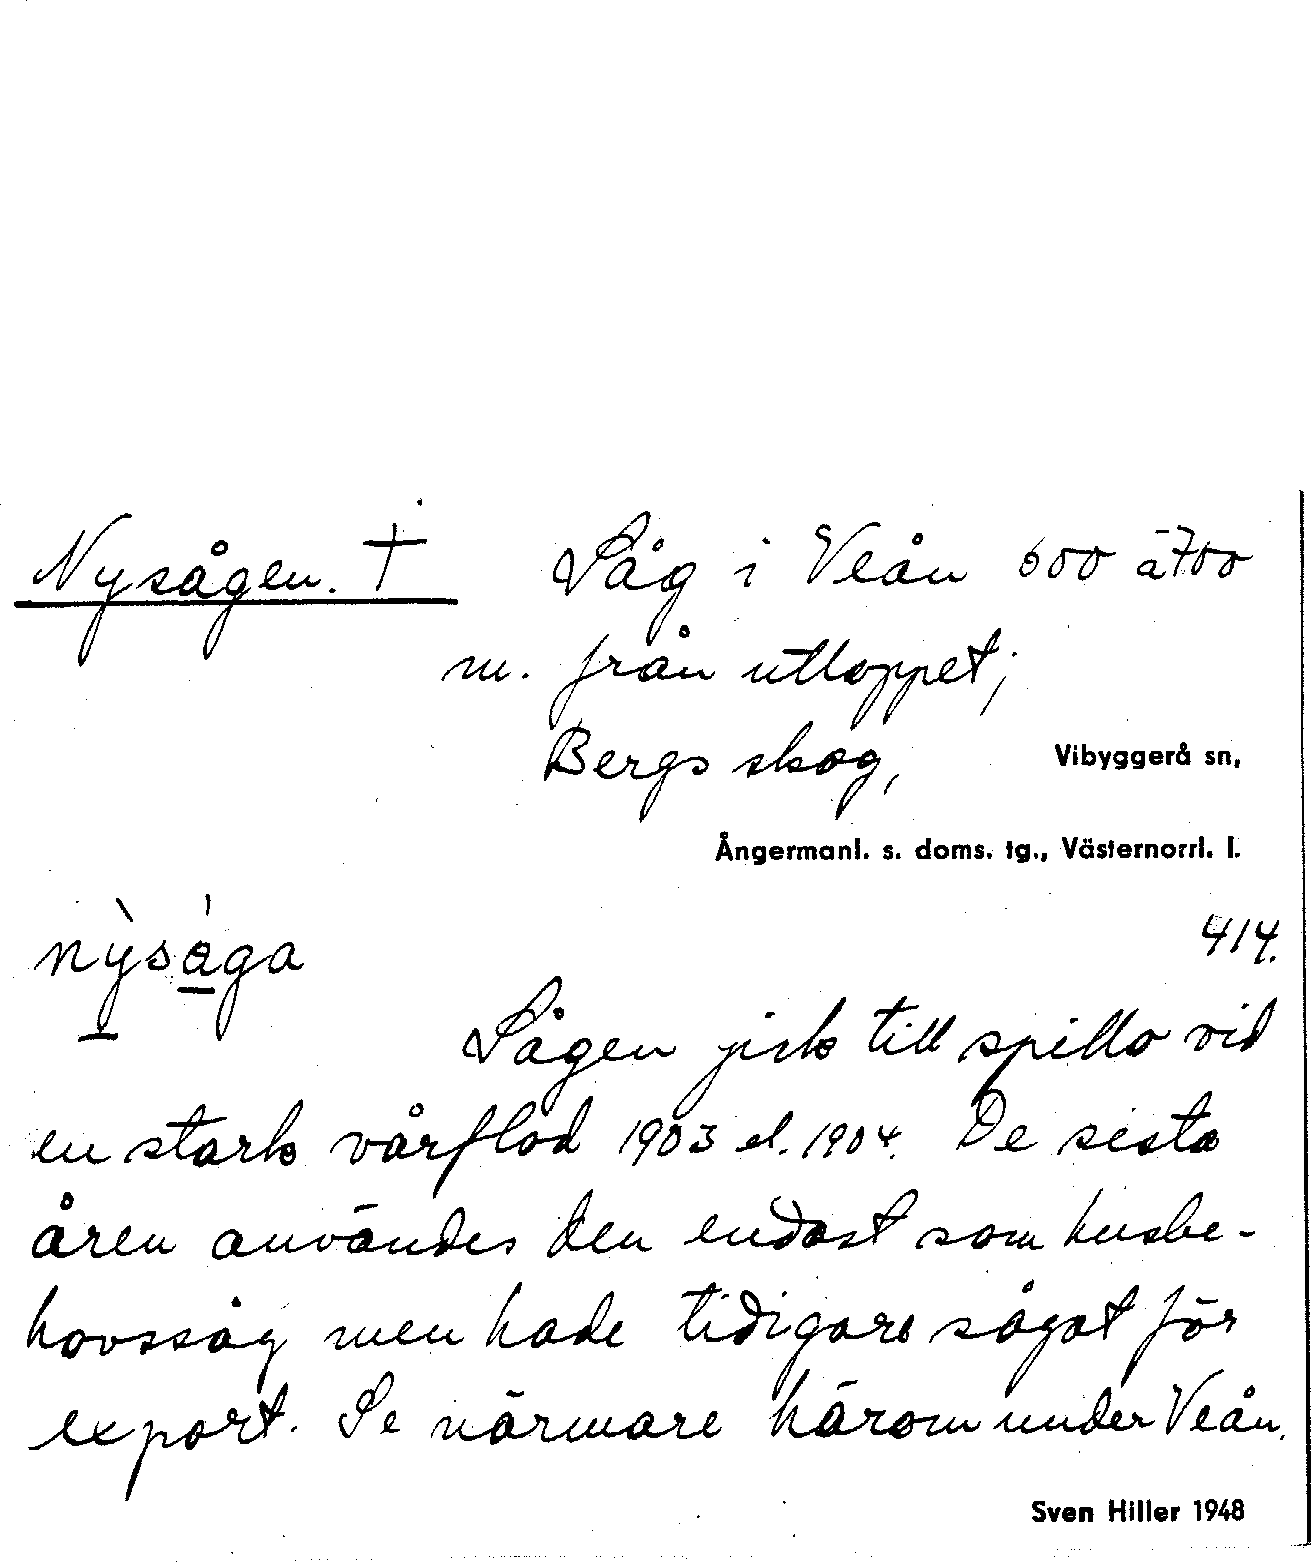 Nysågen. † Såg i Veån 600 à 700
m. från utloppet;
Bergs skog, Vibyggerå sn,
Ångermanl. s. doms. tg., Västernorrl. l.
414.
nỳsága
Sågen gick till spillo vid
en stark vårflod 1903 el. 1904. De sista
åren användes den endast som husbe-
hovssåg men hade tidigare sågat för
export. Se närmare härom under Veån.
Sven Hiller 1948